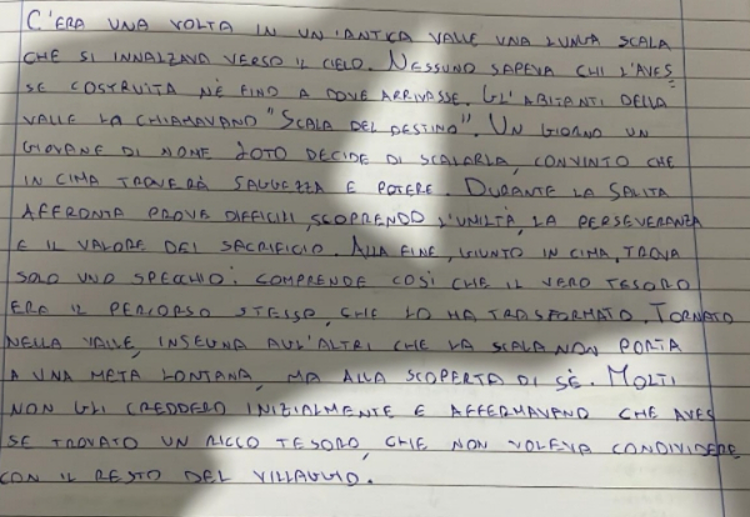 C'ERA UNA VOLTA IN UN'ANTICA VALLE UNA LUNGA SCALA
CHE SI INNALZAVA VERSO IL CIELO. NESSUNO SAPEVA CHI L'AVES
SE COSTRUITA NÈ FINO A DOVE ARRIVASSE. GL'ABITANTI DELLA
VALLE LA CHIAMAVANO "SCALA DEL DESTINO". UN GIORNO UN
GIOVANE DI NOME ZOTO DECIDE DI SCALARLA, CONVINTO CHE
IN CIMA TROVERÀ SAGGEZZA E POTERE. DURANTE LA SALITA
AFFRONTA PROVE DIFFICILI, SCOPRENDO L'UMILTÀ, LA PERSEVERANZA
E IL VALORE DEL SACRIFICIO. ALLA FINE, GIUNTO IN CIMA, TROVA
SOLO UNO SPECCHIO: COMPRENDE COSÌ CHE IL VERO TESORO
ERA IL PERCORSO STESSO, CHE LO HA TRASFORMATO. TORNATO
NELLA VALLE, INSEGNA AGL'ALTRI CHE LA SCALA NON PORTA
A UNA META LONTANA, MA ALLA SCOPERTA DI SÈ. MOLTI
NON GLI CREDDERO INIZIALMENTE E AFFERMAVANO CHE AVES
SE TROVATO UN RICCO TESORO, CHE NON VOLEVA CONDIVIDERE
CON IL RESTO DEL VILLAGGIO.